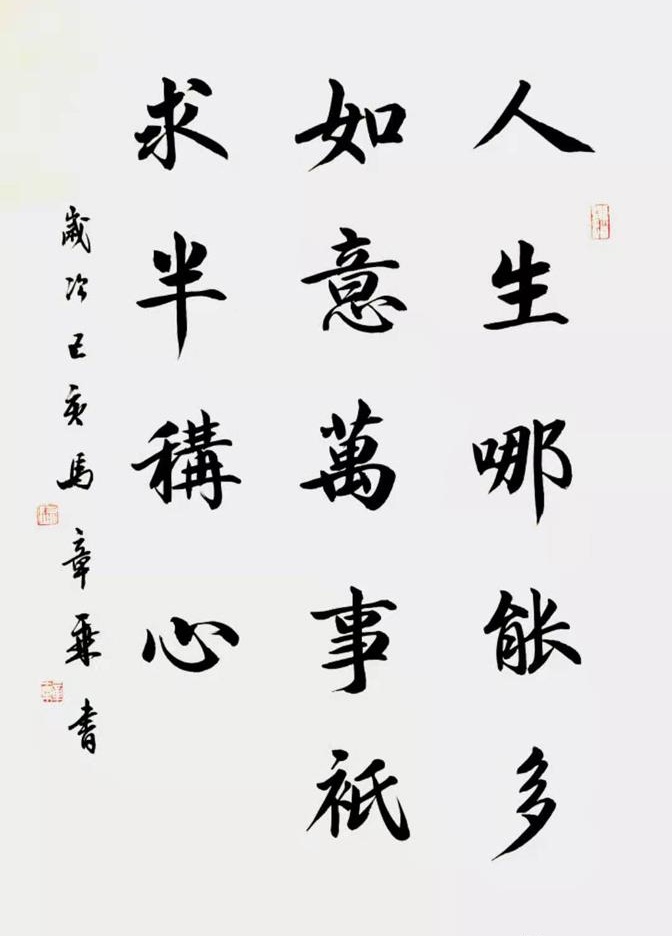 人生哪能多
如意萬事祇
求半稱心
歲次己亥馬章乘書